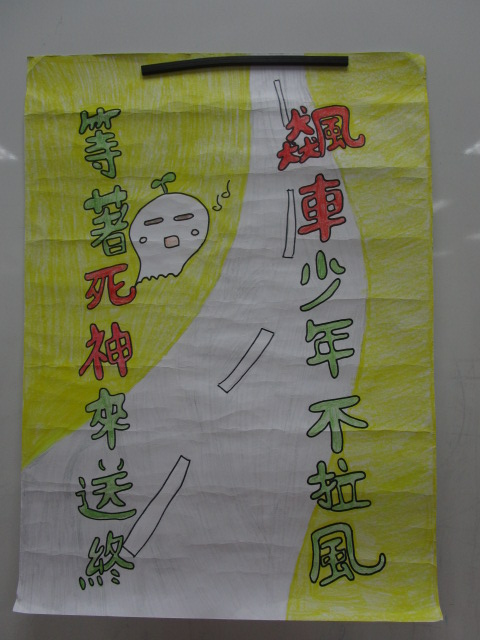 飆車少年不拉風
等著死神來送終